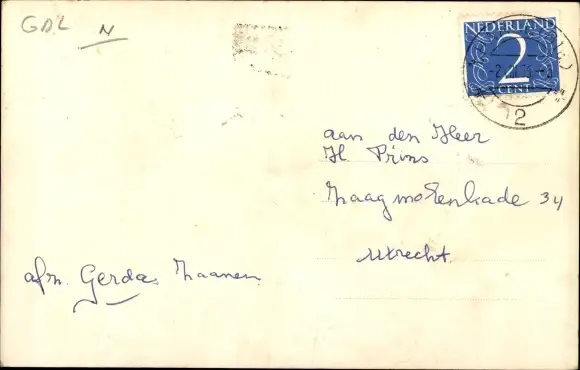 GDL N
NEDERLAND
2
CENT
12
aan den Heer
H Prins
Zaagmolenkade 34
Utrecht.
afz. Gerda Zaanen